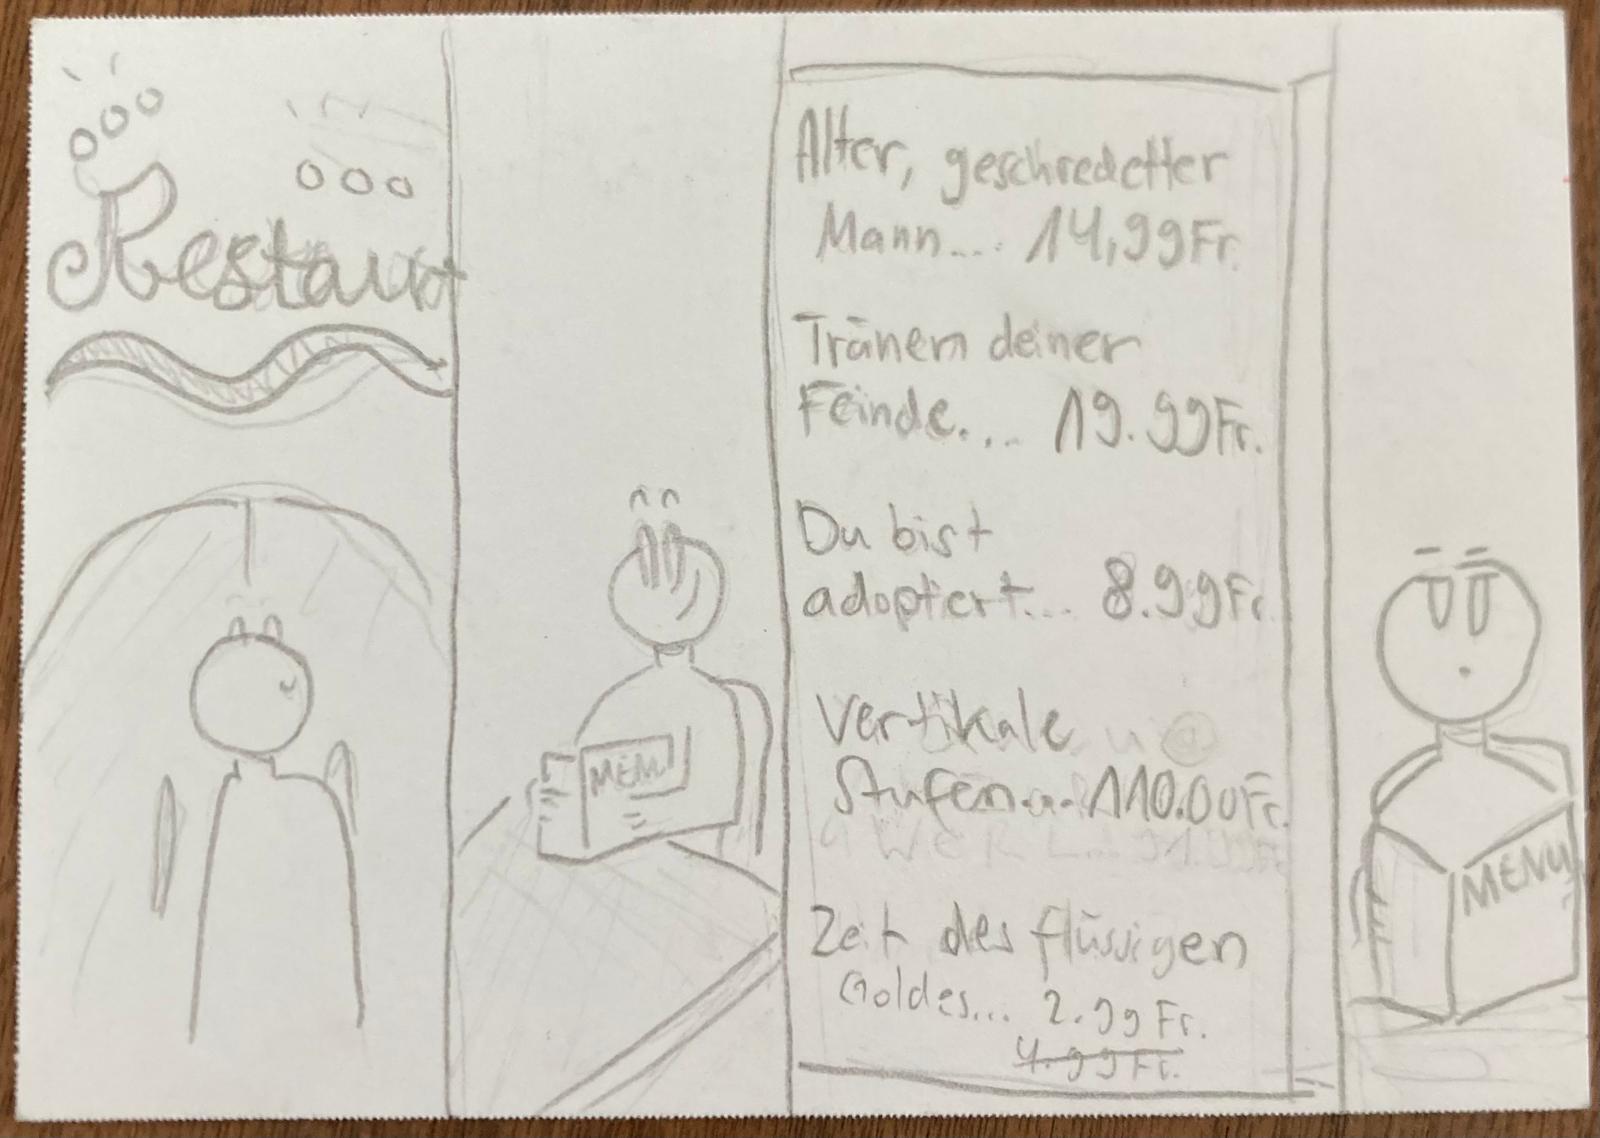 Restaurt
MENU
Alter, geschredetter
Mann.... 14,99Fr.
Tränen deiner
Feinde.... 19.99Fr.
Du bist
adoptiert... 8.99Fr.
Vertikale
Stufen... 110.00Fr.
Zeit des flüssigen
Goldes... 2.99 Fr.
4.99 Fr.
MENU